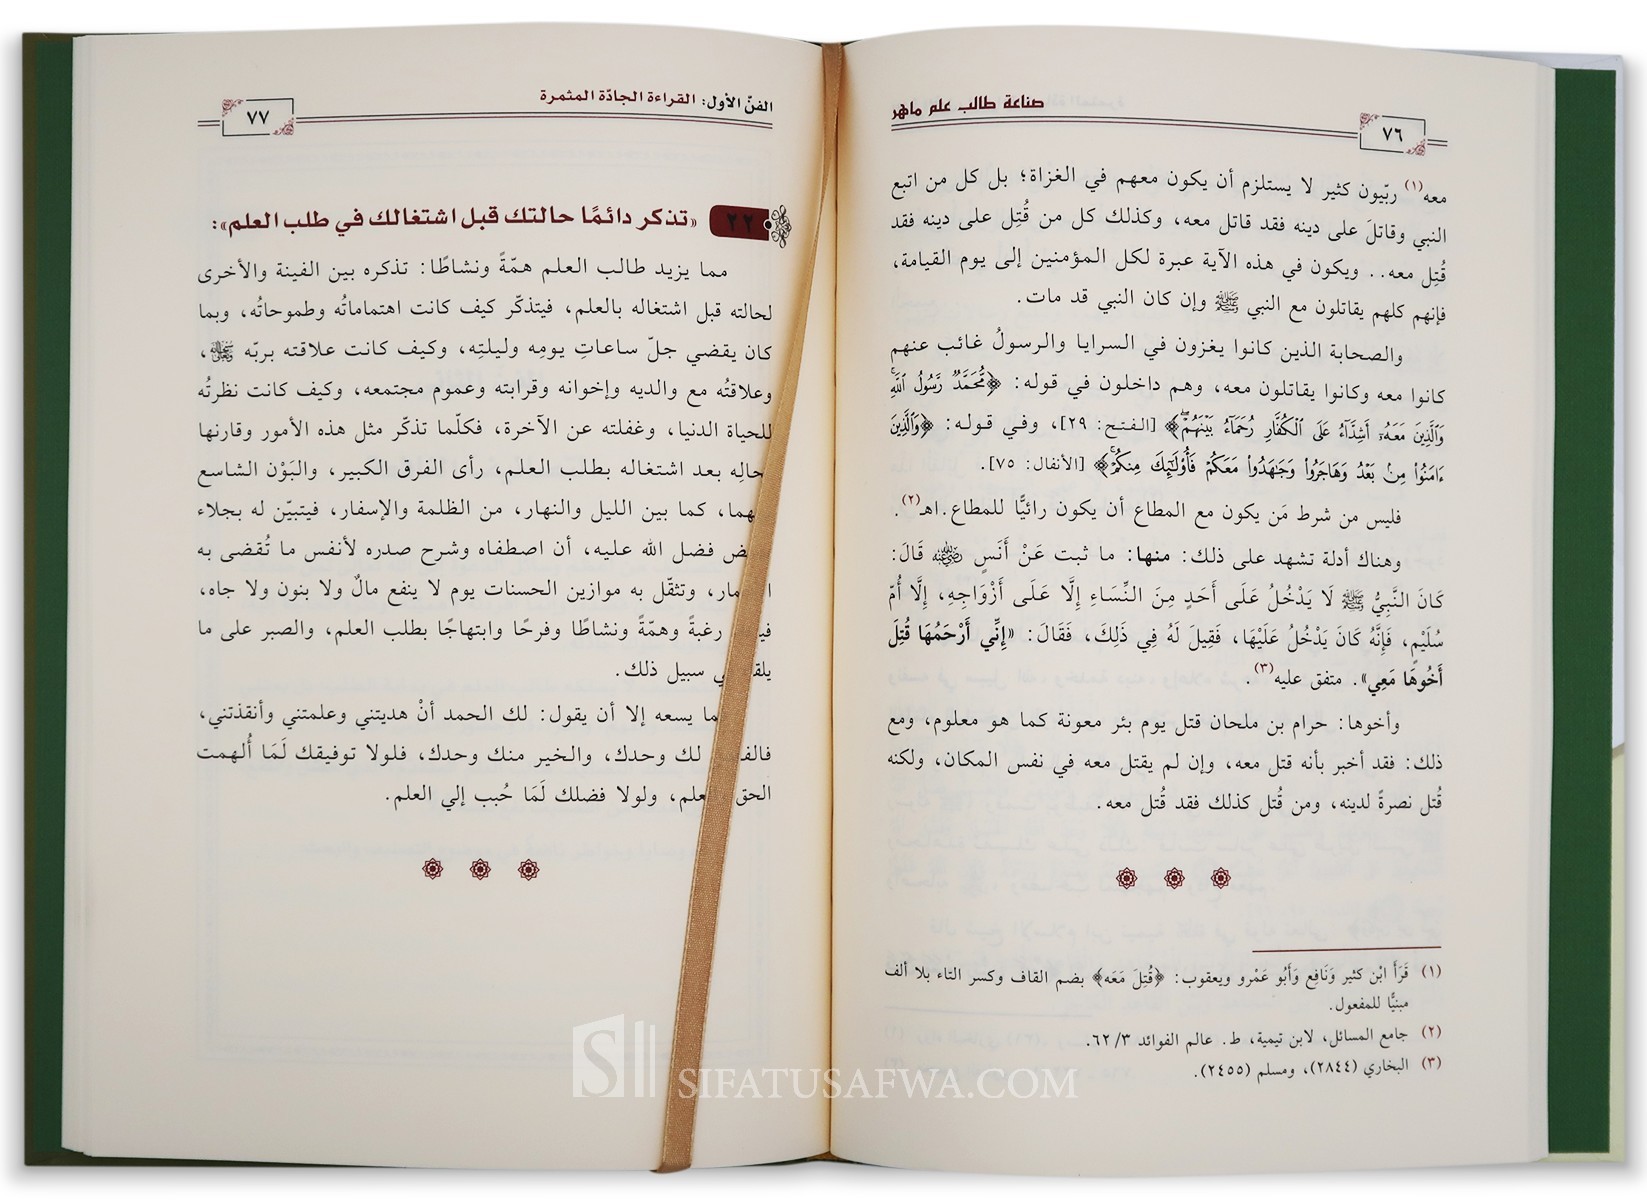 صناعة طالب علم ماهر
٧٦
معه(١) ربّيون كثير لا يستلزم أن يكون معهم في الغزاة؛ بل كل من اتبع
النبي وقاتلَ على دينه فقد قاتل معه، وكذلك كل من قُتِل على دينه فقد
قُتِل معه.. ويكون في هذه الآية عبرة لكل المؤمنين إلى يوم القيامة،
فإنهم كلهم يقاتلون مع النبي ﷺ وإن كان النبي قد مات.
والصحابة الذين كانوا يغزون في السرايا والرسولُ غائب عنهم
كانوا معه وكانوا يقاتلون معه، وهم داخلون في قوله: ﴿مُّحَمَّدٌ رَّسُولُ ٱللَّهِۚ
وَٱلَّذِينَ مَعَهُۥٓ أَشِدَّآءُ عَلَى ٱلۡكُفَّارِ رُحَمَآءُ بَيۡنَهُمۡۖ﴾ [الفتح: ٢٩]، وفي قوله: ﴿وَٱلَّذِينَ
ءَامَنُواْ مِنۢ بَعۡدُ وَهَاجَرُواْ وَجَٰهَدُواْ مَعَكُمۡ فَأُوْلَٰٓئِكَ مِنكُمۡۚ﴾ [الأنفال: ٧٥].
فليس من شرط مَن يكون مع المطاع أن يكون رائيًّا للمطاع.اهـ(٢).
وهناك أدلة تشهد على ذلك: منها: ما ثبت عَنْ أَنَسٍ رضي الله عنه قَالَ:
كَانَ النَّبِيُّ ﷺ لَا يَدْخُلُ عَلَى أَحَدٍ مِنَ النِّسَاءِ إِلَّا عَلَى أَزْوَاجِهِ، إِلَّا أُمّ
سُلَيْمٍ، فَإِنَّهُ كَانَ يَدْخُلُ عَلَيْهَا، فَقِيلَ لَهُ فِي ذَلِكَ، فَقَالَ: «إِنِّي أَرْحَمُهَا قُتِلَ
أَخُوهَا مَعِي». متفق عليه(٣).
وأخوها: حرام بن ملحان قتل يوم بئر معونة كما هو معلوم، ومع
ذلك: فقد أخبر بأنه قتل معه، وإن لم يقتل معه في نفس المكان، ولكنه
قُتل نصرةً لدينه، ومن قُتل كذلك فقد قُتل معه.
(١) قَرَأَ ابْن كثير وَنَافِع وَأَبُو عَمْرو ويعقوب: ﴿قُتِلَ مَعَه﴾ بضم القاف وكسر التاء بلا ألف
مبنيًّا للمفعول.
(٢) جامع المسائل، لابن تيمية، ط. عالم الفوائد ٦٢/٣.
(٣) البخاري (٢٨٤٤)، ومسلم (٢٤٥٥).
الفنّ الأول: القراءة الجادّة المثمرة
٧٧
٢٢ «تذكر دائمًا حالتك قبل اشتغالك في طلب العلم»:
مما يزيد طالب العلم همّةً ونشاطًا: تذكره بين الفينة والأخرى
لحالته قبل اشتغاله بالعلم، فيتذكّر كيف كانت اهتماماتُه وطموحاتُه، وبما
كان يقضي جلّ ساعاتِ يومِه وليلتِه، وكيف كانت علاقته بربّه ،
وعلاقتُه مع والديه وإخوانه وقرابته وعموم مجتمعه، وكيف كانت نظرتُه
للحياة الدنيا، وغفلته عن الآخرة، فكلّما تذكّر مثل هذه الأمور وقارنها
بحاله بعد اشتغاله بطلب العلم، رأى الفرق الكبير، والبَوْن الشاسع
كما بين الليل والنهار، من الظلمة والإسفار، فيتبيّن له بجلاء
فضل الله عليه، أن اصطفاه وشرح صدره لأنفس ما تُقضى به
وتثقّل به موازين الحسنات يوم لا ينفع مالٌ ولا بنون ولا جاه،
رغبةً وهمّةً ونشاطًا وفرحًا وابتهاجًا بطلب العلم، والصبر على ما
سبيل ذلك.
يسعه إلا أن يقول: لك الحمد أنْ هديتني وعلمتني وأنقذتني،
لك وحدك، والخير منك وحدك، فلولا توفيقك لَمَا أُلهمت
الحق ولولا فضلك لَمَا حُبب إلي العلم.
SIFATUSAFWA.COM